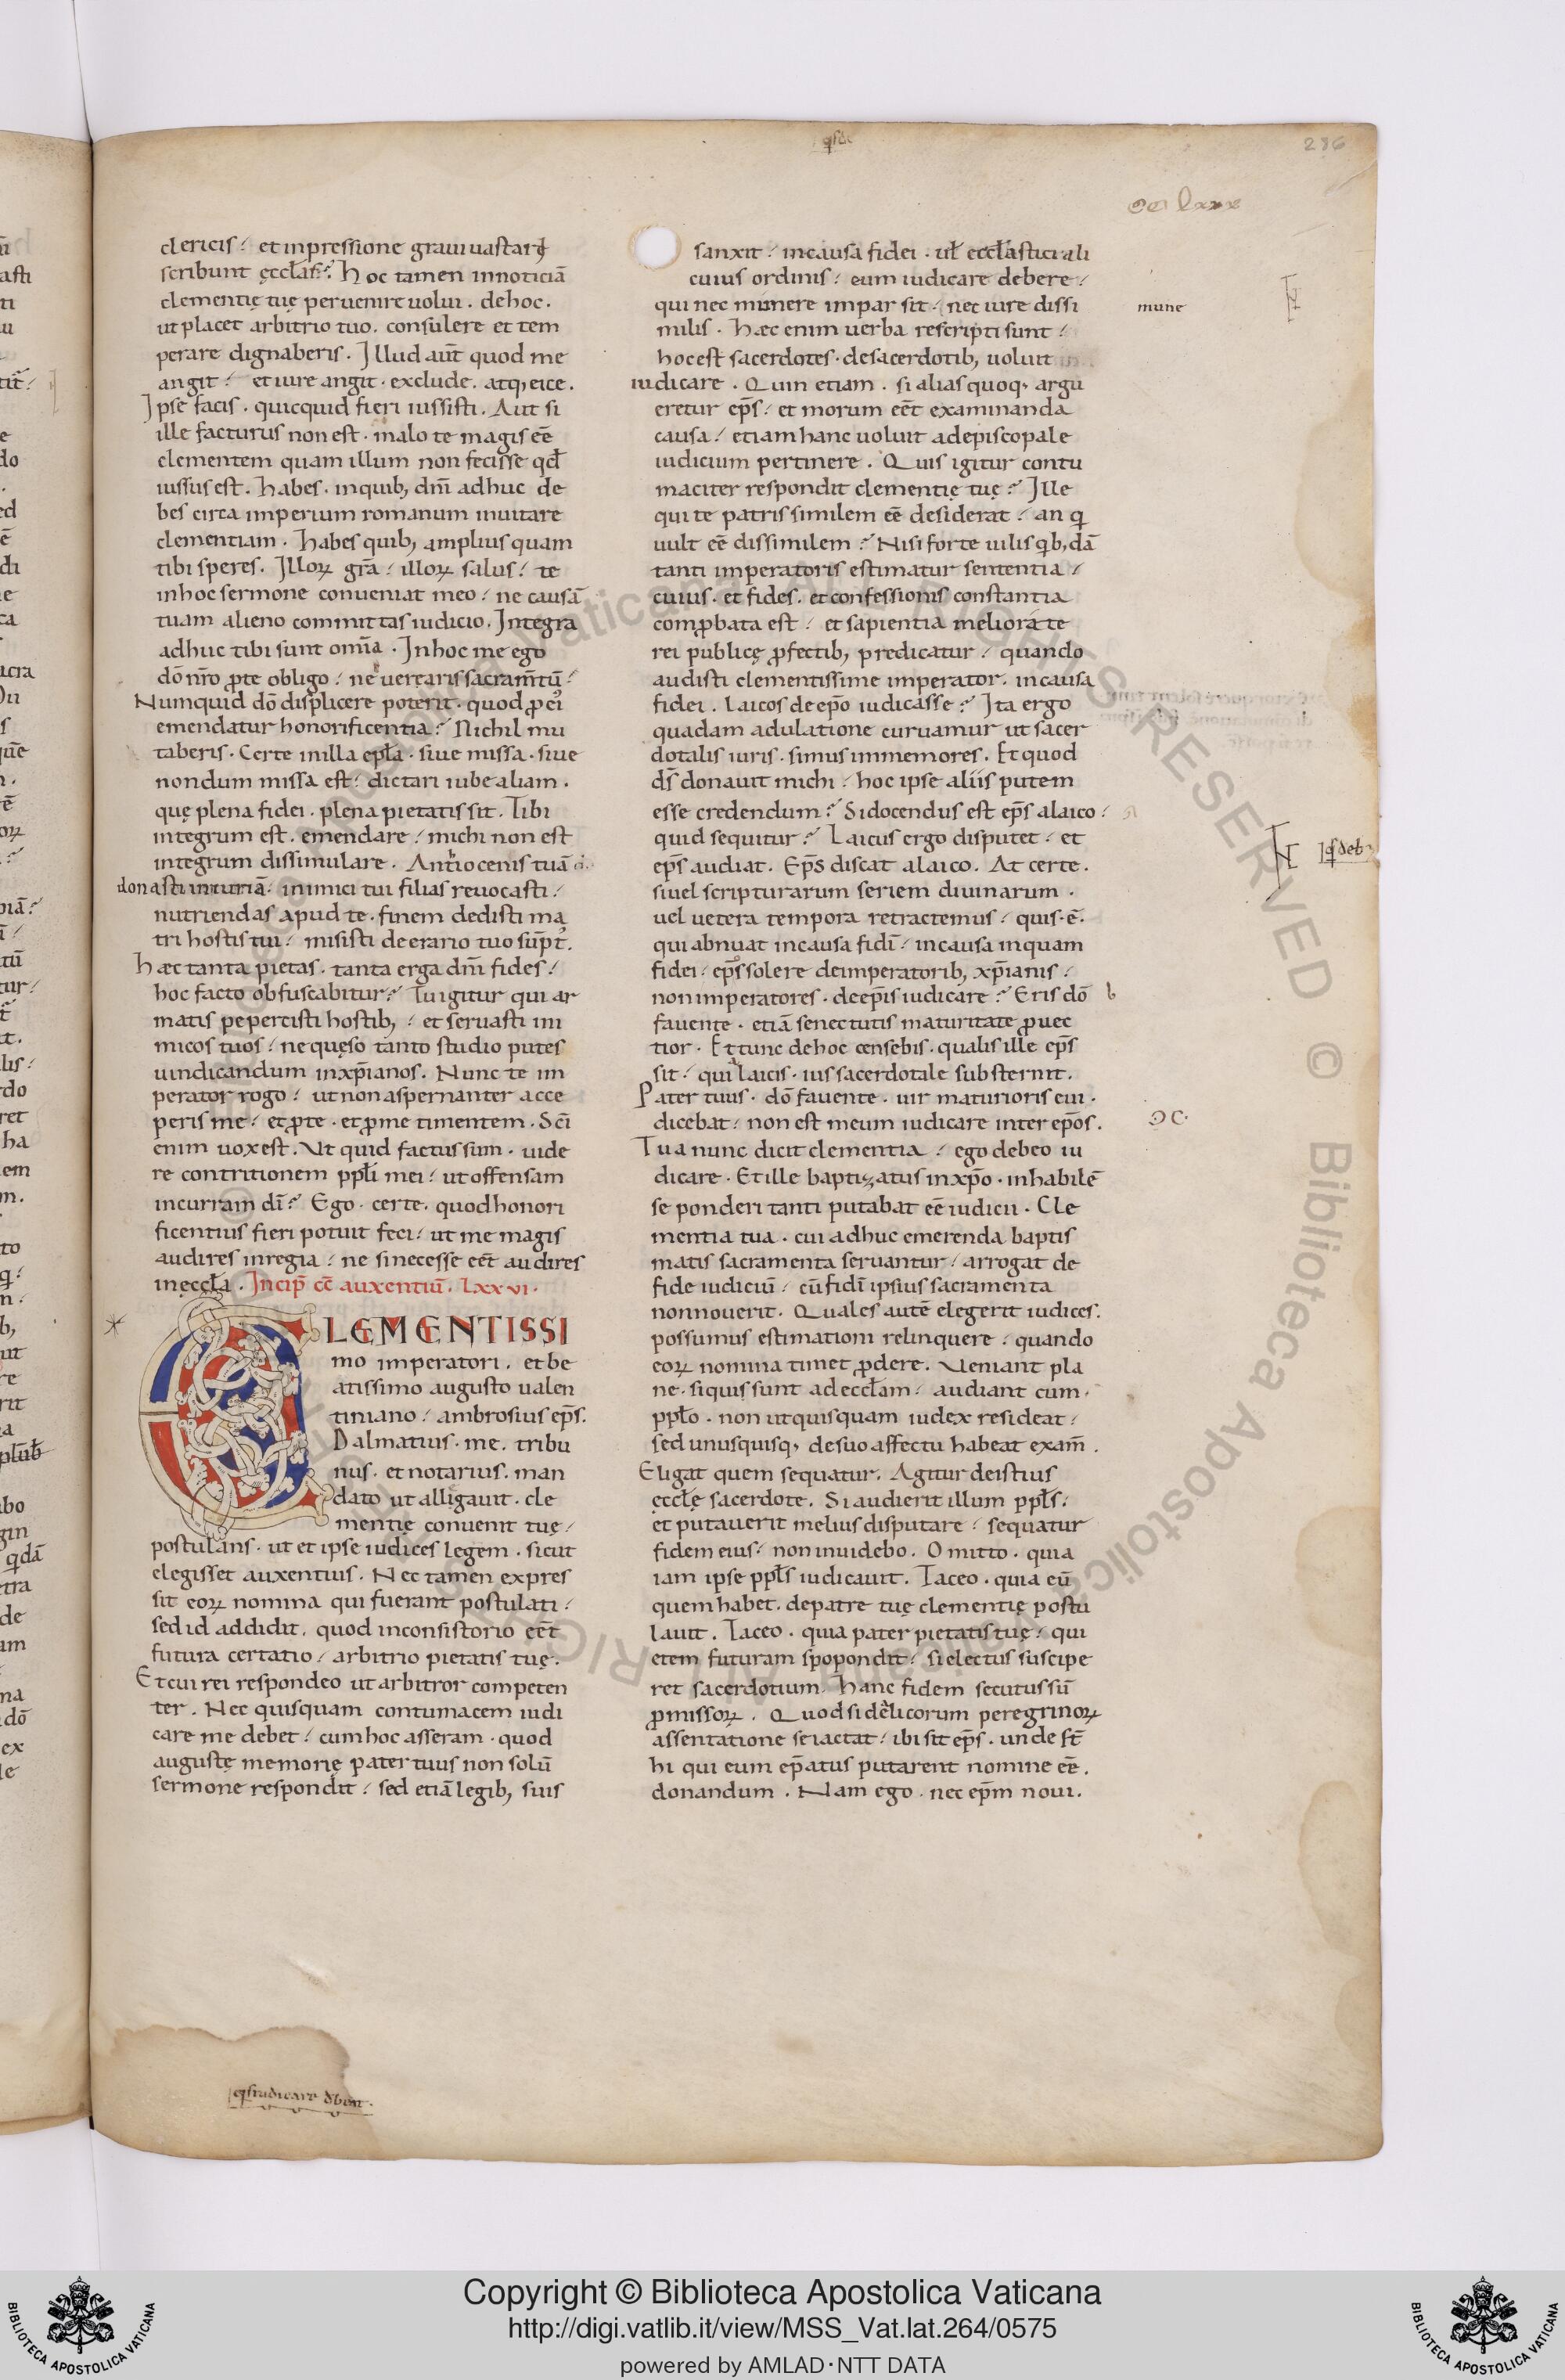 286
clericis. et inpressione graui uastari
scribunt ęccłas. hoc tamen in noticiā
clementię tuę peruenire uolui. de hoc.
ut placet arbitrio tuo. consulere et tem
perare dignaberis. Illud aut̄ quod me
angit. et iure angit. exclude. atq; eice.
Ipse facis. quicquid fieri iussisti. Aut si
ille facturus non est. malo te magis eē
clementem quam illum non fecisse qđ
iussus est. habes. in quib; dm̄ adhuc de
bes circa imperium romanum inuitare
clementiam. habes quib; amplius quam
tibi speres. Illoꝝ gr̄a. illoꝝ salus. te
in hoc sermone conueniat meo. ne causā
tuam alieno committas iudicio. Integra
adhuc tibi sunt om̄ia. In hoc me ego
dō nr̄o ꝓ te obligo. ne uerearis sacram̄tū.
Numquid dō displicere poterit. quod ꝓ ei᾿
emendatur honorificentia? Nichil mu
taberis. Certe in illa epła. siue missa. siue
nondum missa est. dictari iube aliam.
quę plena fidei. plena pietatis sit. Tibi
integrum est. emendare. michi non est
integrum dissimulare. Antiocenis tuā
donasti iniuriā. inimici tui filias reuocasti.
nutriendas apud te. finem dedisti ma
tri hostis tui. misisti de erario tuo sūpt᾿.
hæc tanta pietas. tanta erga dm̄ fides.
hoc facto obfuscabitur? Tu igitur qui ar
matis pepercisti hostib;. et seruasti ini
micos tuos. ne quęso tanto studio putes
uindicandum in xp̄ianos. Nunc te im
perator rogo. ut non aspernanter acce
peris me. et ꝓ te. et ꝓ me timentem. Sci
enim uox est. Vt quid factus sum. uide
re contritionem ppłi mei. ut offensam
incurram dī? Ego. certe. quod honori
ficentius fieri potuit feci. ut me magis
audires in regia. ne si necesse eēt audires
in ęccła. Incip̄ cē auxentiū. Lxxvi.
CLEMENTISSI
mo imperatori. et be
atissimo augusto ualen
tiniano. ambrosius ep̄s.
Dalmatius. me. tribu
nus. et notarius. man
dato ut alligauit. cle
mentię conuenit tuę.
postulans. ut et ipse iudices legem. sicut
elegisset auxentius. Nec tamen expres
sit eoꝝ nomina qui fuerant postulati.
sed id addidit. quod in consistorio eēt
futura certatio. arbitrio pietatis tuę.
Et cui rei respondeo ut arbitror competen
ter. Nec quisquam contumacem iudi
care me debet. cum hoc asseram. quod
augustę memorię pater tuus non solū
sermone respondit. sed etiā legib; suis
sanxit. in causa fidei. uł ecclastici ali
cuius ordinis. eum iudicare debere.
qui nec munere impar sit. nec iure dissi
milis. hæc enim uerba rescripti sunt.
hoc est sacerdotes. de sacerdotib; uoluit
iudicare. Quin etiam. si alias quoq; argu
eretur ep̄s. et morum eēt examinanda
causa. etiam hanc uoluit ad episcopale
iudicium pertinere. Quis igitur contu
maciter respondit clementię tuę? Ille
qui te patris similem eē desiderat. an q̄
uult eē dissimilem? Nisi forte uilis qb;dā
tanti imperatoris estimatur sententia.
cuius. et fides. et confessionis constantia
comꝓbata est. et sapientia meliorate
rei publicę ꝓfectib; predicatur. quando
audisti clementissime imperator. in causa
fidei. laicos de ep̄o iudicasse? Ita ergo
quadam adulatione curuamur ut sacer
dotalis iuris. simus immemores. Et quod
ds̄ donauit michi. hoc ipse aliis putem
esse credendum? Si docendus est ep̄s a laico.
quid sequitur? Laicus ergo disputet. et
ep̄s audiat. Ep̄s discat a laico. At certe.
siuel scripturarum seriem diuinarum.
uel uetera tempora retractemus. quis. ē.
qui abnuat in causa fidī. in causa inquam
fidei. ep̄s solere de imperatorib; xp̄ianis.
non imperatores. de ep̄is iudicare? Eris dō
fauente. etiā senectutis maturitate ꝓuec
tior. Et tunc de hoc censebis. qualis ille ep̄s
sit. qui laicis. ius sacerdotale substernit.
Pater tuus. dō fauente. uir maturioris eui.
dicebat. non est meum iudicare inter ep̄os.
Tua nunc dicit clementia. ego debeo iu
dicare. Et ille baptizatus in xp̄o. inhabilē
se ponderi tanti putabat eē iudicii. Cle
mentia tua. cui adhuc emerenda baptis
matis sacramenta seruantur. arrogat de
fide iudiciū. cū fidī ipsius sacramenta
non nouerit. Quales autē elegerit iudices.
possumus estimationi relinquere. quando
eoꝝ nomina timet ꝓdere. Veniant pla
ne. si quis sunt ad eccłam. audiant cum.
ppło. non ut quisquam iudex resideat.
sed unusquisq; de suo affectu habeat exam̄.
Eligat quem sequatur. Agitur de istius
ęccłę sacerdote. Si audierit illum ppłs.
et putauerit melius disputare. sequatur
fidem eius. non inuidebo. Omitto. quia
iam ipse ppłs iudicauit. Taceo. quia eū
quem habet. de patre tuę clementię postu
lauit. Taceo. quia pater pietatis tuę. qui
etem futuram spopondit. si electus suscipe
ret sacerdotium. hanc fidem secutus sū
ꝓmissoꝝ. Quod si de licorum peregrinoꝝ
assentatione se iactat. ibi sit ep̄s. unde st̄
hi qui eum ep̄atus putarent nomine eē.
donandum. Nam ego. nec ep̄m noui.
mune
Copyright © Biblioteca Apostolica Vaticana
http://digi.vatlib.it/view/MSS_Vat.lat.264/0575
powered by AMLAD·NTT DATA
BIBLIOTECA APOSTOLICA VATICANA
BIBLIOTECA APOSTOLICA VATICANA